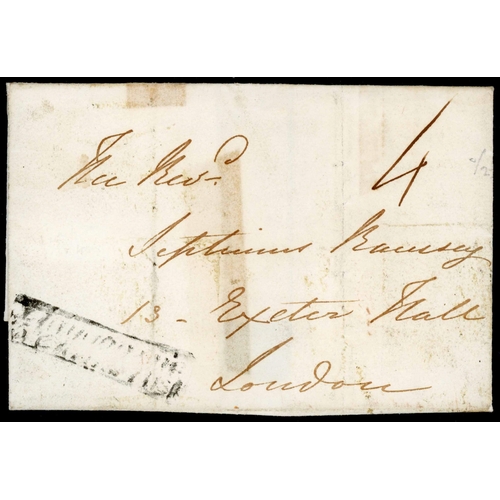 4
The Revd.
Septimus Ramsey
13 - Exeter Hall
London